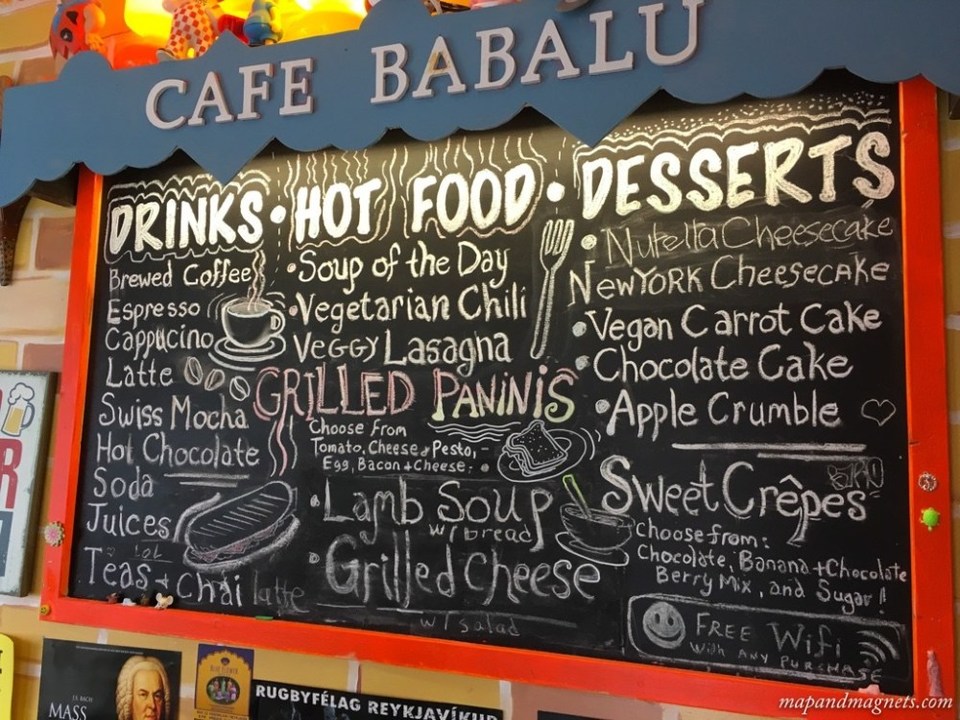 CAFE BABALU
DRINKS • HOT FOOD • DESSERTS
Brewed Coffee
Espresso
Cappucino
Latte
Swiss Mocha
Hot Chocolate
Soda
Juices
Teas + Chai latte
• Soup of the Day
• Vegetarian Chili
VeGGy Lasagna
GRILLED PANINIS
Choose From
Tomato, Cheese & Pesto, -
Egg, Bacon + Cheese.
• Lamb Soup
w/bread
• Grilled Cheese
w/salad
• Nutella Cheesecake
NEWYORK CHEESECAKE
• Vegan Carrot Cake
• Chocolate Cake
• Apple Crumble
Sweet Crêpes
Choose from:
Chocolate, Banana + Chocolate
Berry Mix, and Sugar!
FREE Wifi
WITH ANY PURCHASE
J.S. BACH
MASS
RUGBYFÉLAG REYKJAVÍKUR
mapandmagnets.com